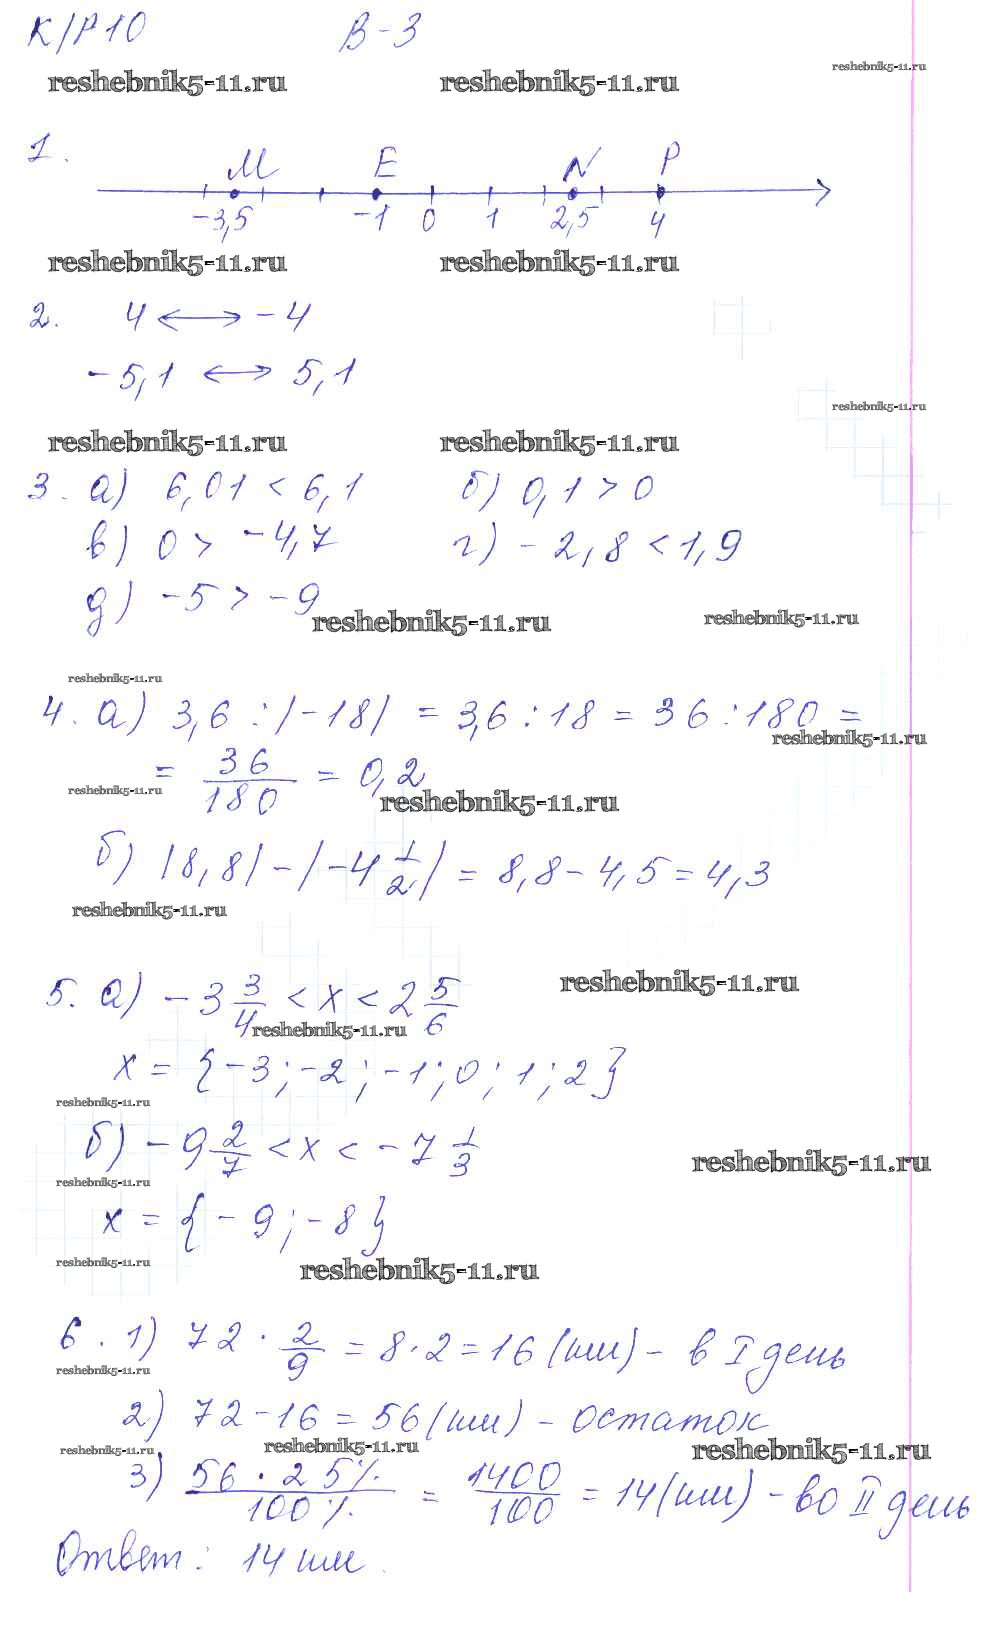 К/Р 10 В-3
reshebnik5-11.ru reshebnik5-11.ru reshebnik5-11.ru
1. M E N P
-3,5 -1 0 1 2,5 4
reshebnik5-11.ru reshebnik5-11.ru
2. 4 ⟷ -4
-5,1 ⟷ 5,1
reshebnik5-11.ru
reshebnik5-11.ru reshebnik5-11.ru
3. а) 6,01 < 6,1 б) 0,1 > 0
в) 0 > -4,7 г) -2,8 < 1,9
д) -5 > -9
reshebnik5-11.ru reshebnik5-11.ru
reshebnik5-11.ru
4. а) 3,6 : |-18| = 3,6 : 18 = 36 : 180 =
reshebnik5-11.ru
= 36/180 = 0,2
reshebnik5-11.ru reshebnik5-11.ru
б) |8,8| - |-4 1/2| = 8,8 - 4,5 = 4,3
reshebnik5-11.ru
5. а) -3 3/4 < x < 2 5/6
reshebnik5-11.ru
reshebnik5-11.ru
x = {-3; -2; -1; 0; 1; 2}
reshebnik5-11.ru
б) -9 2/7 < x < -7 1/3
reshebnik5-11.ru
reshebnik5-11.ru
x = {-9; -8}
reshebnik5-11.ru reshebnik5-11.ru
6. 1) 72 · 2/9 = 8 · 2 = 16 (км) - в I день
reshebnik5-11.ru
2) 72 - 16 = 56 (км) - остаток
reshebnik5-11.ru reshebnik5-11.ru reshebnik5-11.ru
3) 56 · 25% / 100% = 1400/100 = 14 (км) - во II день
Ответ: 14 км.